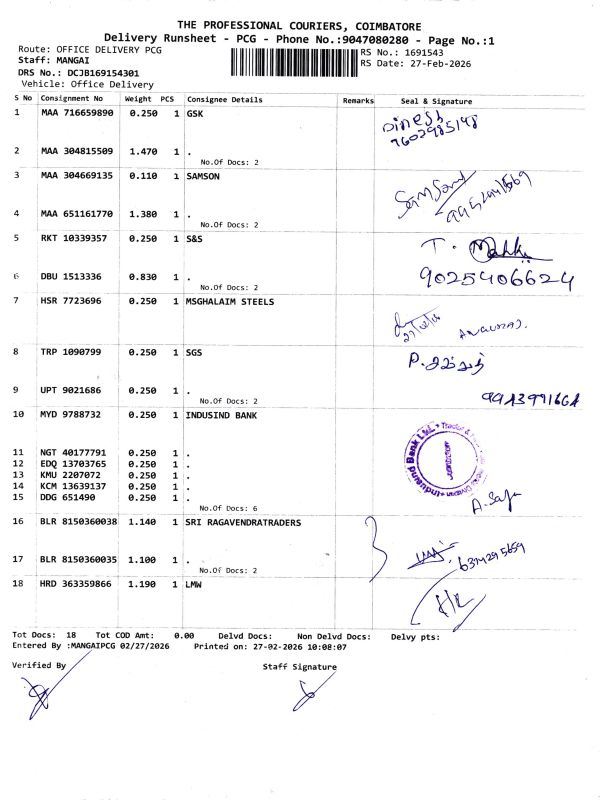 THE PROFESSIONAL COURIERS, COIMBATORE
Delivery Runsheet - PCG - Phone No.:9047080280 - Page No.:1
Route: OFFICE DELIVERY PCG
Staff: MANGAI
DRS No.: DCJB169154301
Vehicle: Office Delivery
RS No.: 1691543
RS Date: 27-Feb-2026
S No Consignment No Weight PCS Consignee Details Remarks Seal & Signature
1 MAA 716659890 0.250 1 GSK
Dinesh
2 MAA 304815509 1.470 1 .
No.Of Docs: 2
3 MAA 304669135 0.110 1 SAMSON
Samson
4 MAA 651161770 1.380 1 .
No.Of Docs: 2
5 RKT 10339357 0.250 1 S&S
T.
6 DBU 1513336 0.830 1 .
9025406624
No.Of Docs: 2
7 HSR 7723696 0.250 1 MSGHALAIM STEELS
8 TRP 1090799 0.250 1 SGS
P.
9 UPT 9021686 0.250 1 .
No.Of Docs: 2
10 MYD 9788732 0.250 1 INDUSIND BANK
IndusInd Bank Ltd.
11 NGT 40177791 0.250 1 .
12 EDQ 13703765 0.250 1 .
13 KMU 2207072 0.250 1 .
14 KCM 13639137 0.250 1 .
15 DDG 651490 0.250 1 .
No.Of Docs: 6
16 BLR 8150360038 1.140 1 SRI RAGAVENDRATRADERS
17 BLR 8150360035 1.100 1 .
No.Of Docs: 2
18 HRD 363359866 1.190 1 LMW
Tot Docs: 18 Tot COD Amt: 0.00 Delvd Docs: Non Delvd Docs: Delvy pts:
Entered By :MANGAIPCG 02/27/2026 Printed on: 27-02-2026 10:08:07
Verified By Staff Signature